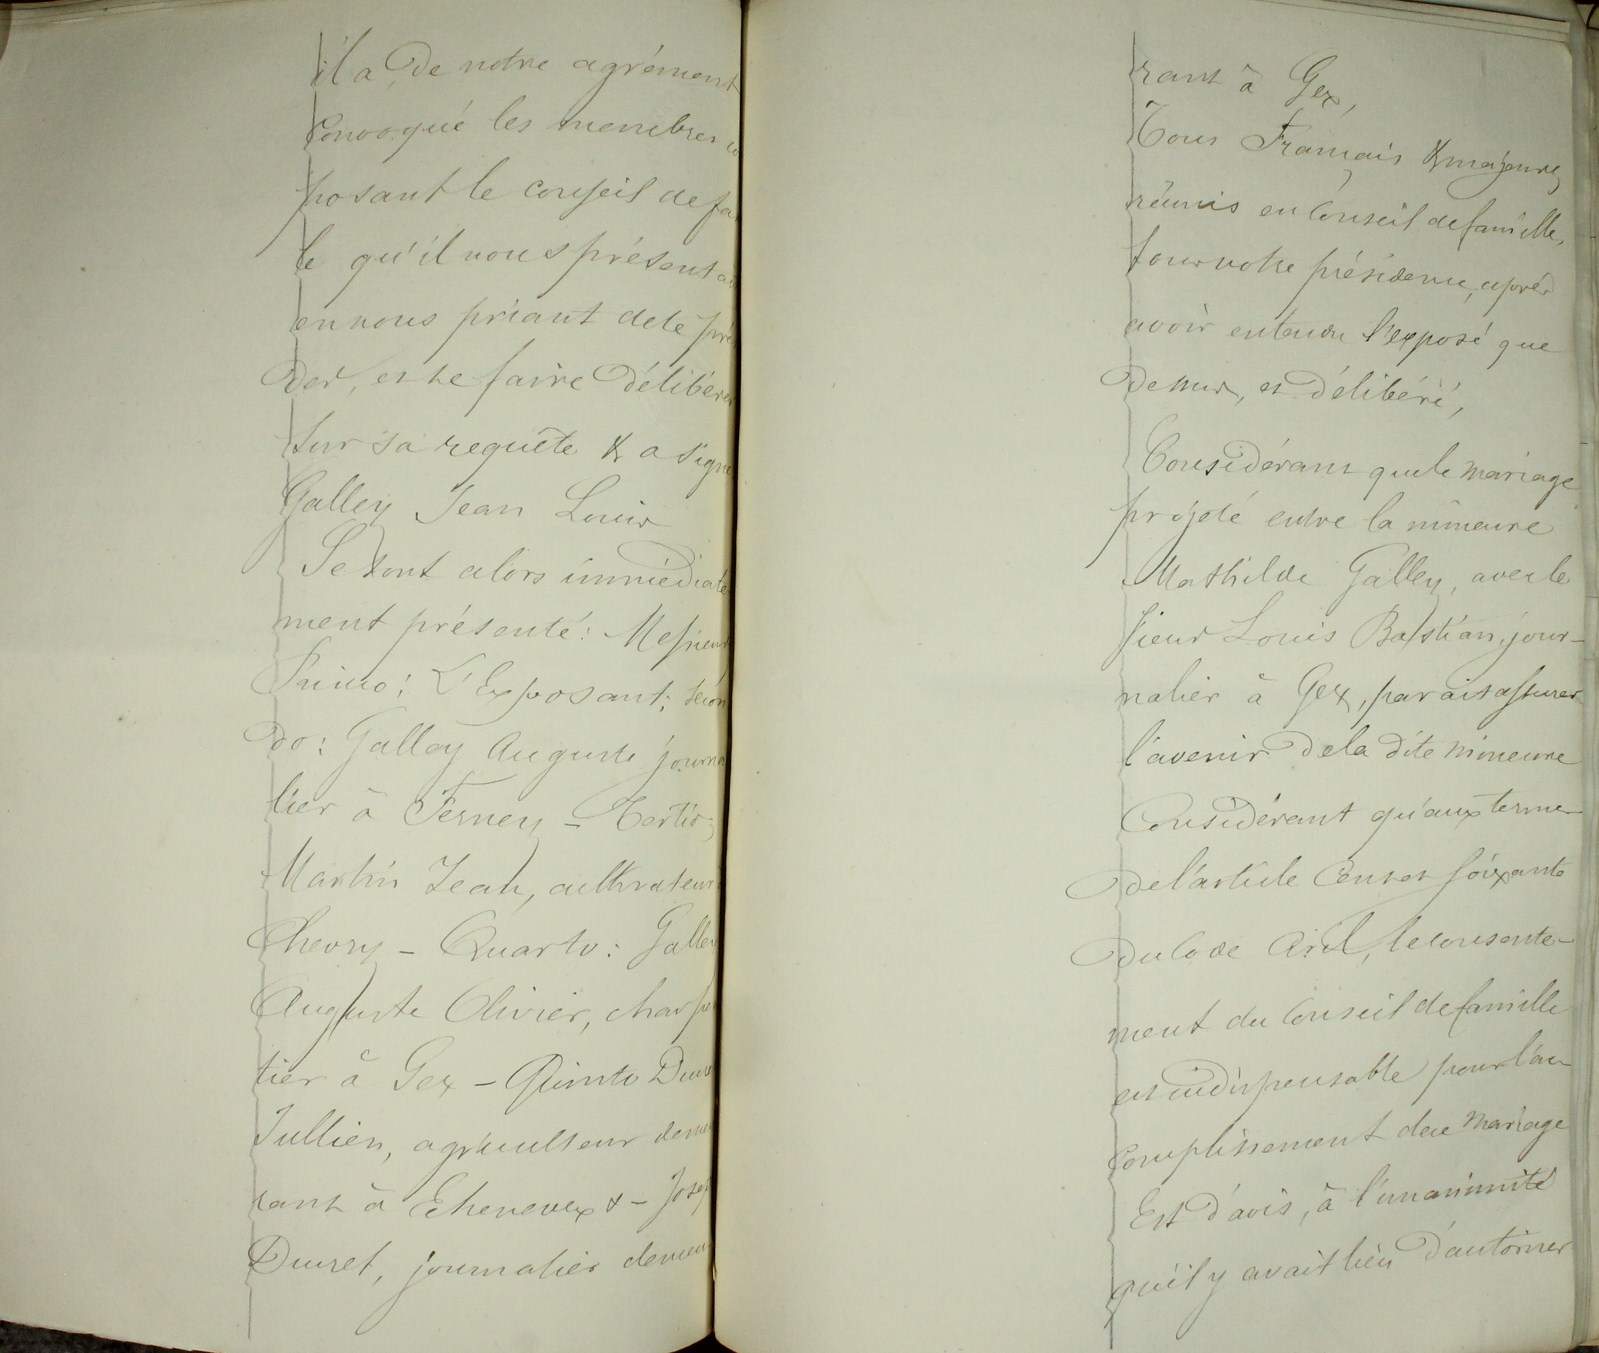 il a de notre agrément
convoqué les membres co
posant le conseil de fa
le qu'il nous présenta
en nous priant de le pré
der, et le faire délibérer
sur sa requête & a signé
Galley Jean Louis
Se sont alors immédiate
ment présenté: Messieurs
Primo: L'Exposant; Secon
do: Galley Auguste journa
lier à Ferney - Tertio;
Martin Jean, cultivateur
Chevry - Quarto: Galley
Auguste Olivier, charpen
tier à Gex - Quinto Duret
Jullien, agriculteur demeu
rant à Echenevex & - Joseph
Duret, journalier demeu
rant à Gex,
Tous Français & majeurs,
réunis en Conseil de famille,
sous notre présidence, après
avoir entendu l'exposé que
dessus, et délibéré,
Considérant que le mariage
projeté entre la mineure
Mathilde Galley, avec le
sieur Louis Bastian, jour-
nalier à Gex, parait assurer
l'avenir de la dite mineure
Considérant qu'aux termes
de l'article Cent soixante
du Code Civil, le consente-
ment du Conseil de famille
est indispensable pour l'ac
complissement de ce mariage
Est d'avis, à l'unanimité
qu'il y avait lieu d'autoriser